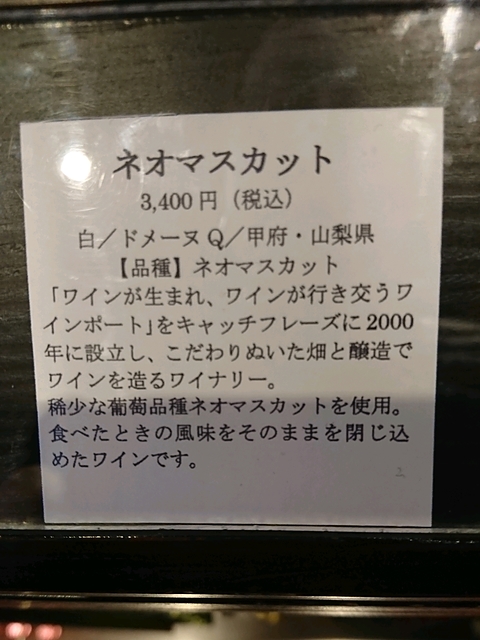 ネオマスカット
3,400円（税込）
白／ドメーヌQ／甲府・山梨県
【品種】ネオマスカット
「ワインが生まれ、ワインが行き交うワ
インポート」をキャッチフレーズに2000
年に設立し、こだわりぬいた畑と醸造で
ワインを造るワイナリー。
稀少な葡萄品種ネオマスカットを使用。
食べたときの風味をそのままを閉じ込
めたワインです。
2